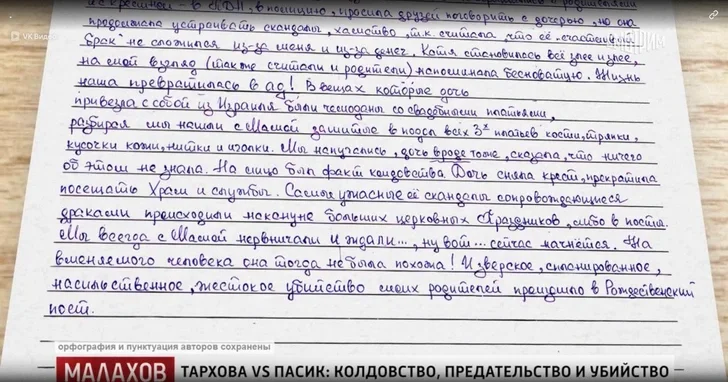 VK Видео
с крестной - в КДН, в полицию, просила друзей поговорить с дочерью, но она
продолжала устраивать скандалы, хамство, т.к. считала, что её „счастливый
брак" не сложился из-за меня и из-за денег. Катя становилась всё злее и злее,
на мой взгляд (также считали и родители) напоминала бесноватую. Жизнь
наша превратилась в ад! В вещах которые дочь
привезла с собой из Израиля были чемоданы со свадебными платьями,
разбирая мы нашли с Машей зашитые в подол всех 3х платьев кости, тряпки,
кусочки кожи, нитки и иголки. Мы напугались, дочь вроде тоже, сказала, что ничего
об этом не знала. На лицо был факт колдовства. Дочь сняла крест, прекратила
посещать Храм и службы. Самые ужасные её скандалы сопровождающиеся
драками происходили накануне больших церковных Праздников, либо в посты.
Мы всегда с Машей нервничали и ждали..., ну вот... сейчас начнётся. На
вменяемого человека она тогда не была похожа! Изверское, спланированное,
насильственное, жестокое убийство моих родителей произошло в Рождественский
пост.
орфография и пунктуация авторов сохранены
МАЛАХОВ ТАРХОВА VS ПАСИК: КОЛДОВСТВО, ПРЕДАТЕЛЬСТВО И УБИЙСТВО